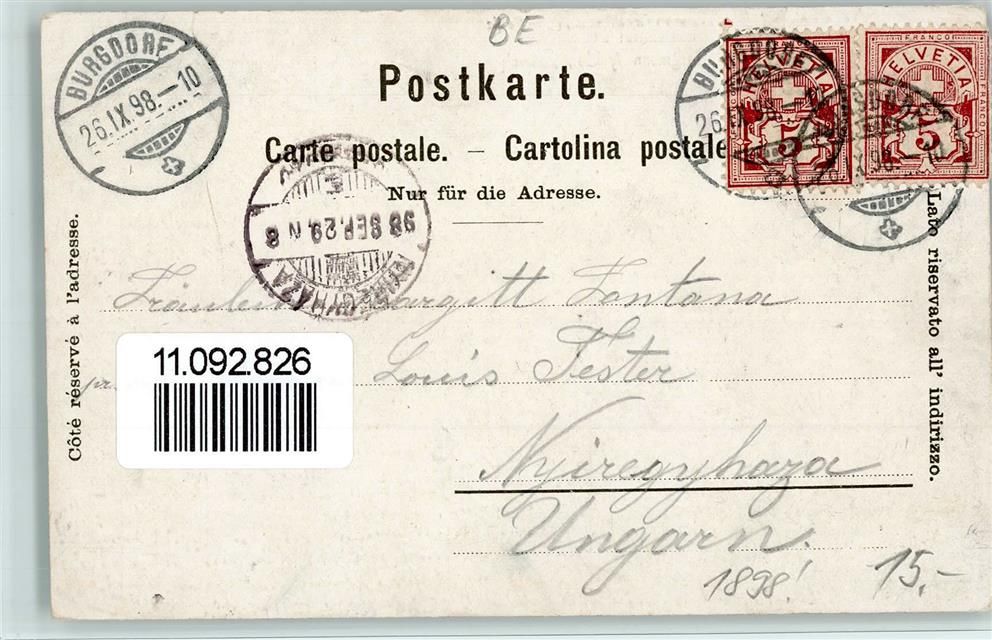 BE
BURGDORF
26.IX.98.-10
Postkarte.
Carte postale. – Cartolina postale
Nur für die Adresse.
FRANCO
HELVETIA
5
FRANCO
HELVETIA
FRANCO
5
98 SEP. 29. N 8
NYIREGYHAZA
Côté réservé à l'adresse.
Lato riservato all' indirizzo.
Fräulein Margitt Fontana
11.092.826
Louis Fester
Nyiregyhaza
Ungarn.
1898!
15.-